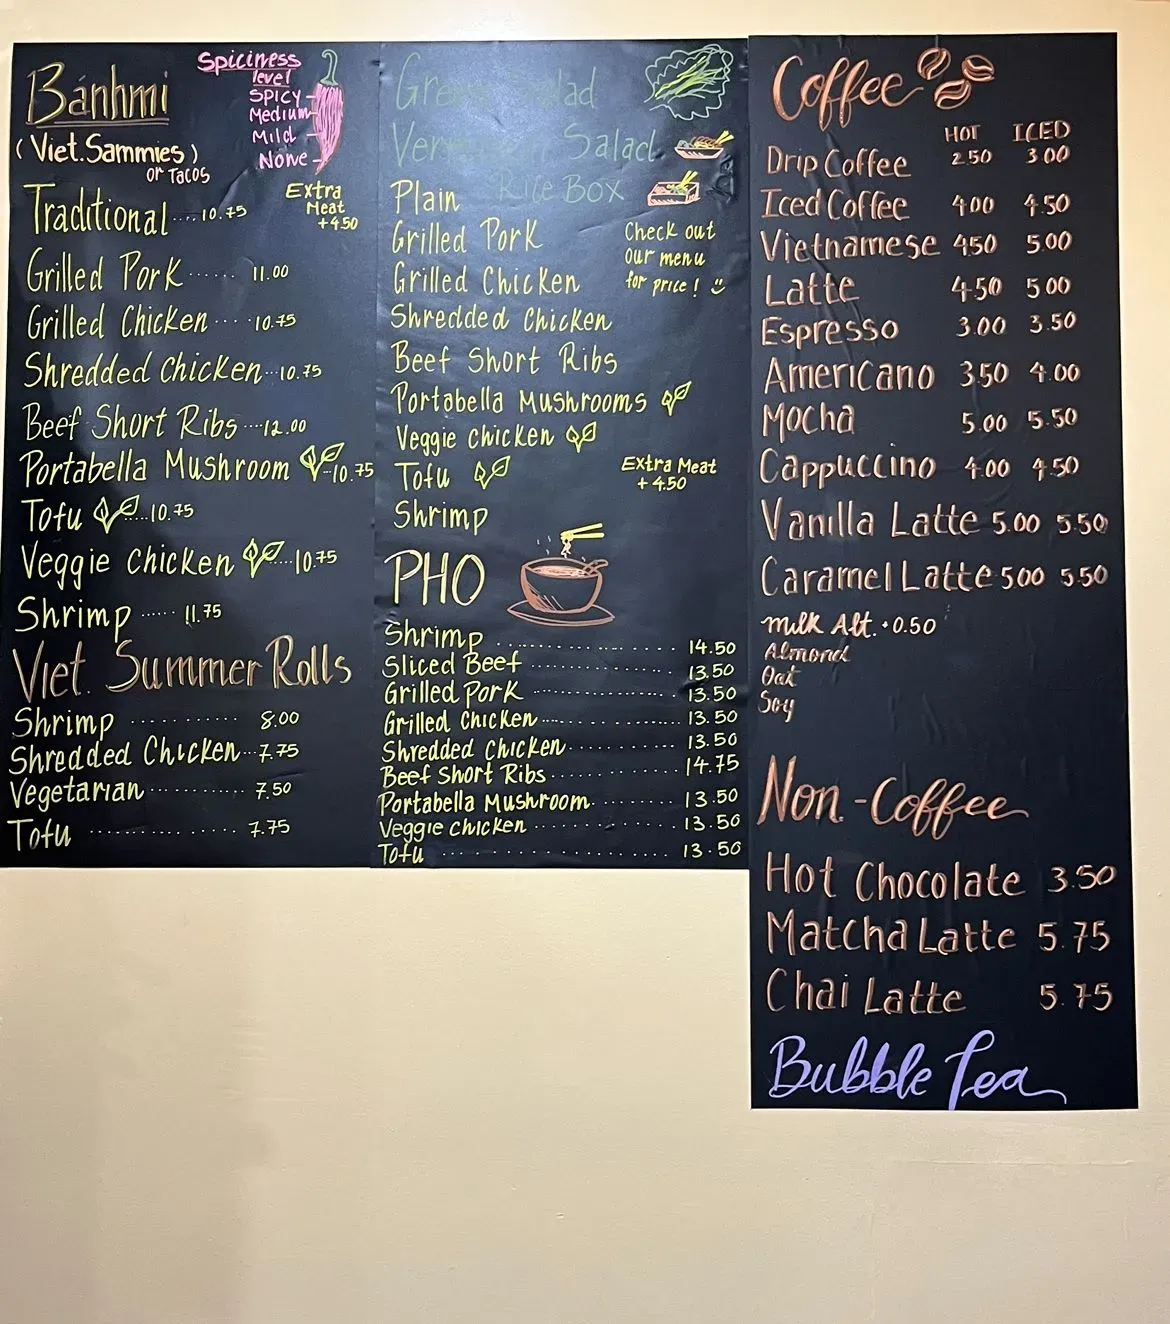 Bánhmi
(Viet. Sammies)
or Tacos
Spiciness
level
SPICY
Medium
Mild
None
Extra
Meat
+4.50
Traditional .... 10.75
Grilled Pork ...... 11.00
Grilled Chicken .... 10.75
Shredded Chicken ... 10.75
Beef Short Ribs .... 12.00
Portabella Mushroom ... 10.75
Tofu ..... 10.75
Veggie Chicken .... 10.75
Shrimp ...... 11.75
Viet. Summer Rolls
Shrimp ........... 8.00
Shredded Chicken ... 7.75
Vegetarian ............ 7.50
Tofu ................. 7.75
Green Salad
Vermicelli Salad
Rice Box
Plain
Grilled Pork
Grilled Chicken
Shredded Chicken
Beef Short Ribs
Portabella Mushrooms
Veggie Chicken
Tofu
Shrimp
Check out
our menu
for price!
Extra Meat
+4.50
PHO
Shrimp ..................... 14.50
Sliced Beef .................. 13.50
Grilled Pork .................. 13.50
Grilled Chicken .................. 13.50
Shredded Chicken ............ 13.50
Beef Short Ribs .............. 14.75
Portabella Mushroom ......... 13.50
Veggie Chicken ................ 13.50
Tofu ......................... 13.50
Coffee
HOT ICED
Drip Coffee 2.50 3.00
Iced Coffee 4.00 4.50
Vietnamese 4.50 5.00
Latte 4.50 5.00
Espresso 3.00 3.50
Americano 3.50 4.00
Mocha 5.00 5.50
Cappuccino 4.00 4.50
Vanilla Latte 5.00 5.50
Caramel Latte 5.00 5.50
Milk Alt. +0.50
Almond
Oat
Soy
Non-Coffee
Hot Chocolate 3.50
Matcha Latte 5.75
Chai Latte 5.75
Bubble Tea